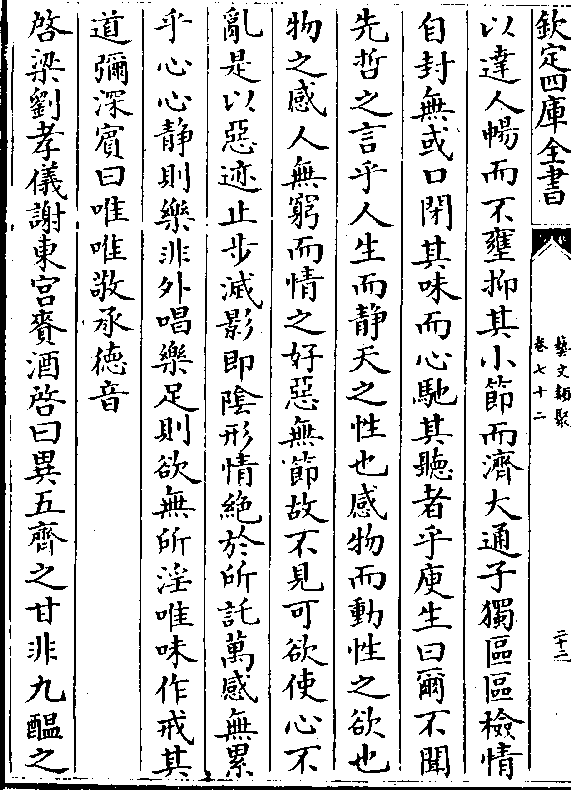 欽定四庫全書
藝文類聚
卷七十二
二十二
以達人暢而不壅抑其小節而濟大通子獨區區檢情
自封無或口閉其味而心馳其聽者乎庾生曰爾不聞
先哲之言乎人生而静天之性也感物而動性之欲也
物之感人無窮而情之好惡無節故不見可欲使心不
亂是以惡迹止步滅影即陰形情絶於所託萬感無累
乎心心静則樂非外唱樂足則欲無所淫唯味作戒其
道彌深賓曰唯唯敬承徳音
啓梁劉孝儀謝東宮賚酒啓曰異五齊之甘非九醖之